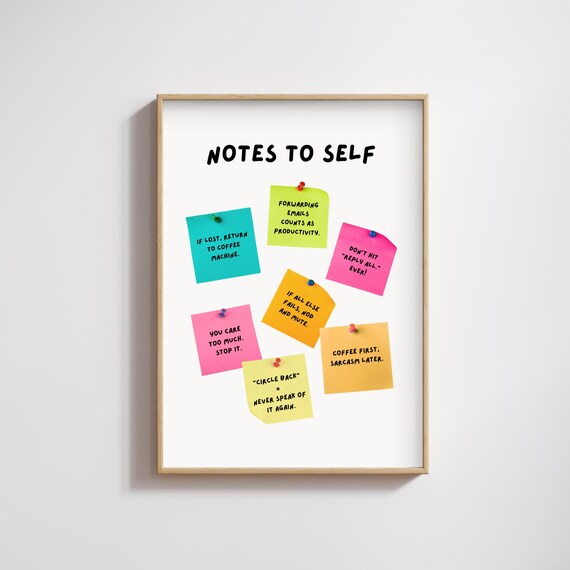 NOTES TO SELF
FORWARDING
EMAILS
COUNTS AS
PRODUCTIVITY.
IF LOST, RETURN
TO COFFEE
MACHINE.
DON'T HIT
"REPLY ALL."
EVER!
IF ALL ELSE
FAILS, NOD
AND MUTE.
YOU CARE
TOO MUCH.
STOP IT.
COFFEE FIRST,
SARCASM LATER.
"CIRCLE BACK"
=
NEVER SPEAK OF
IT AGAIN.